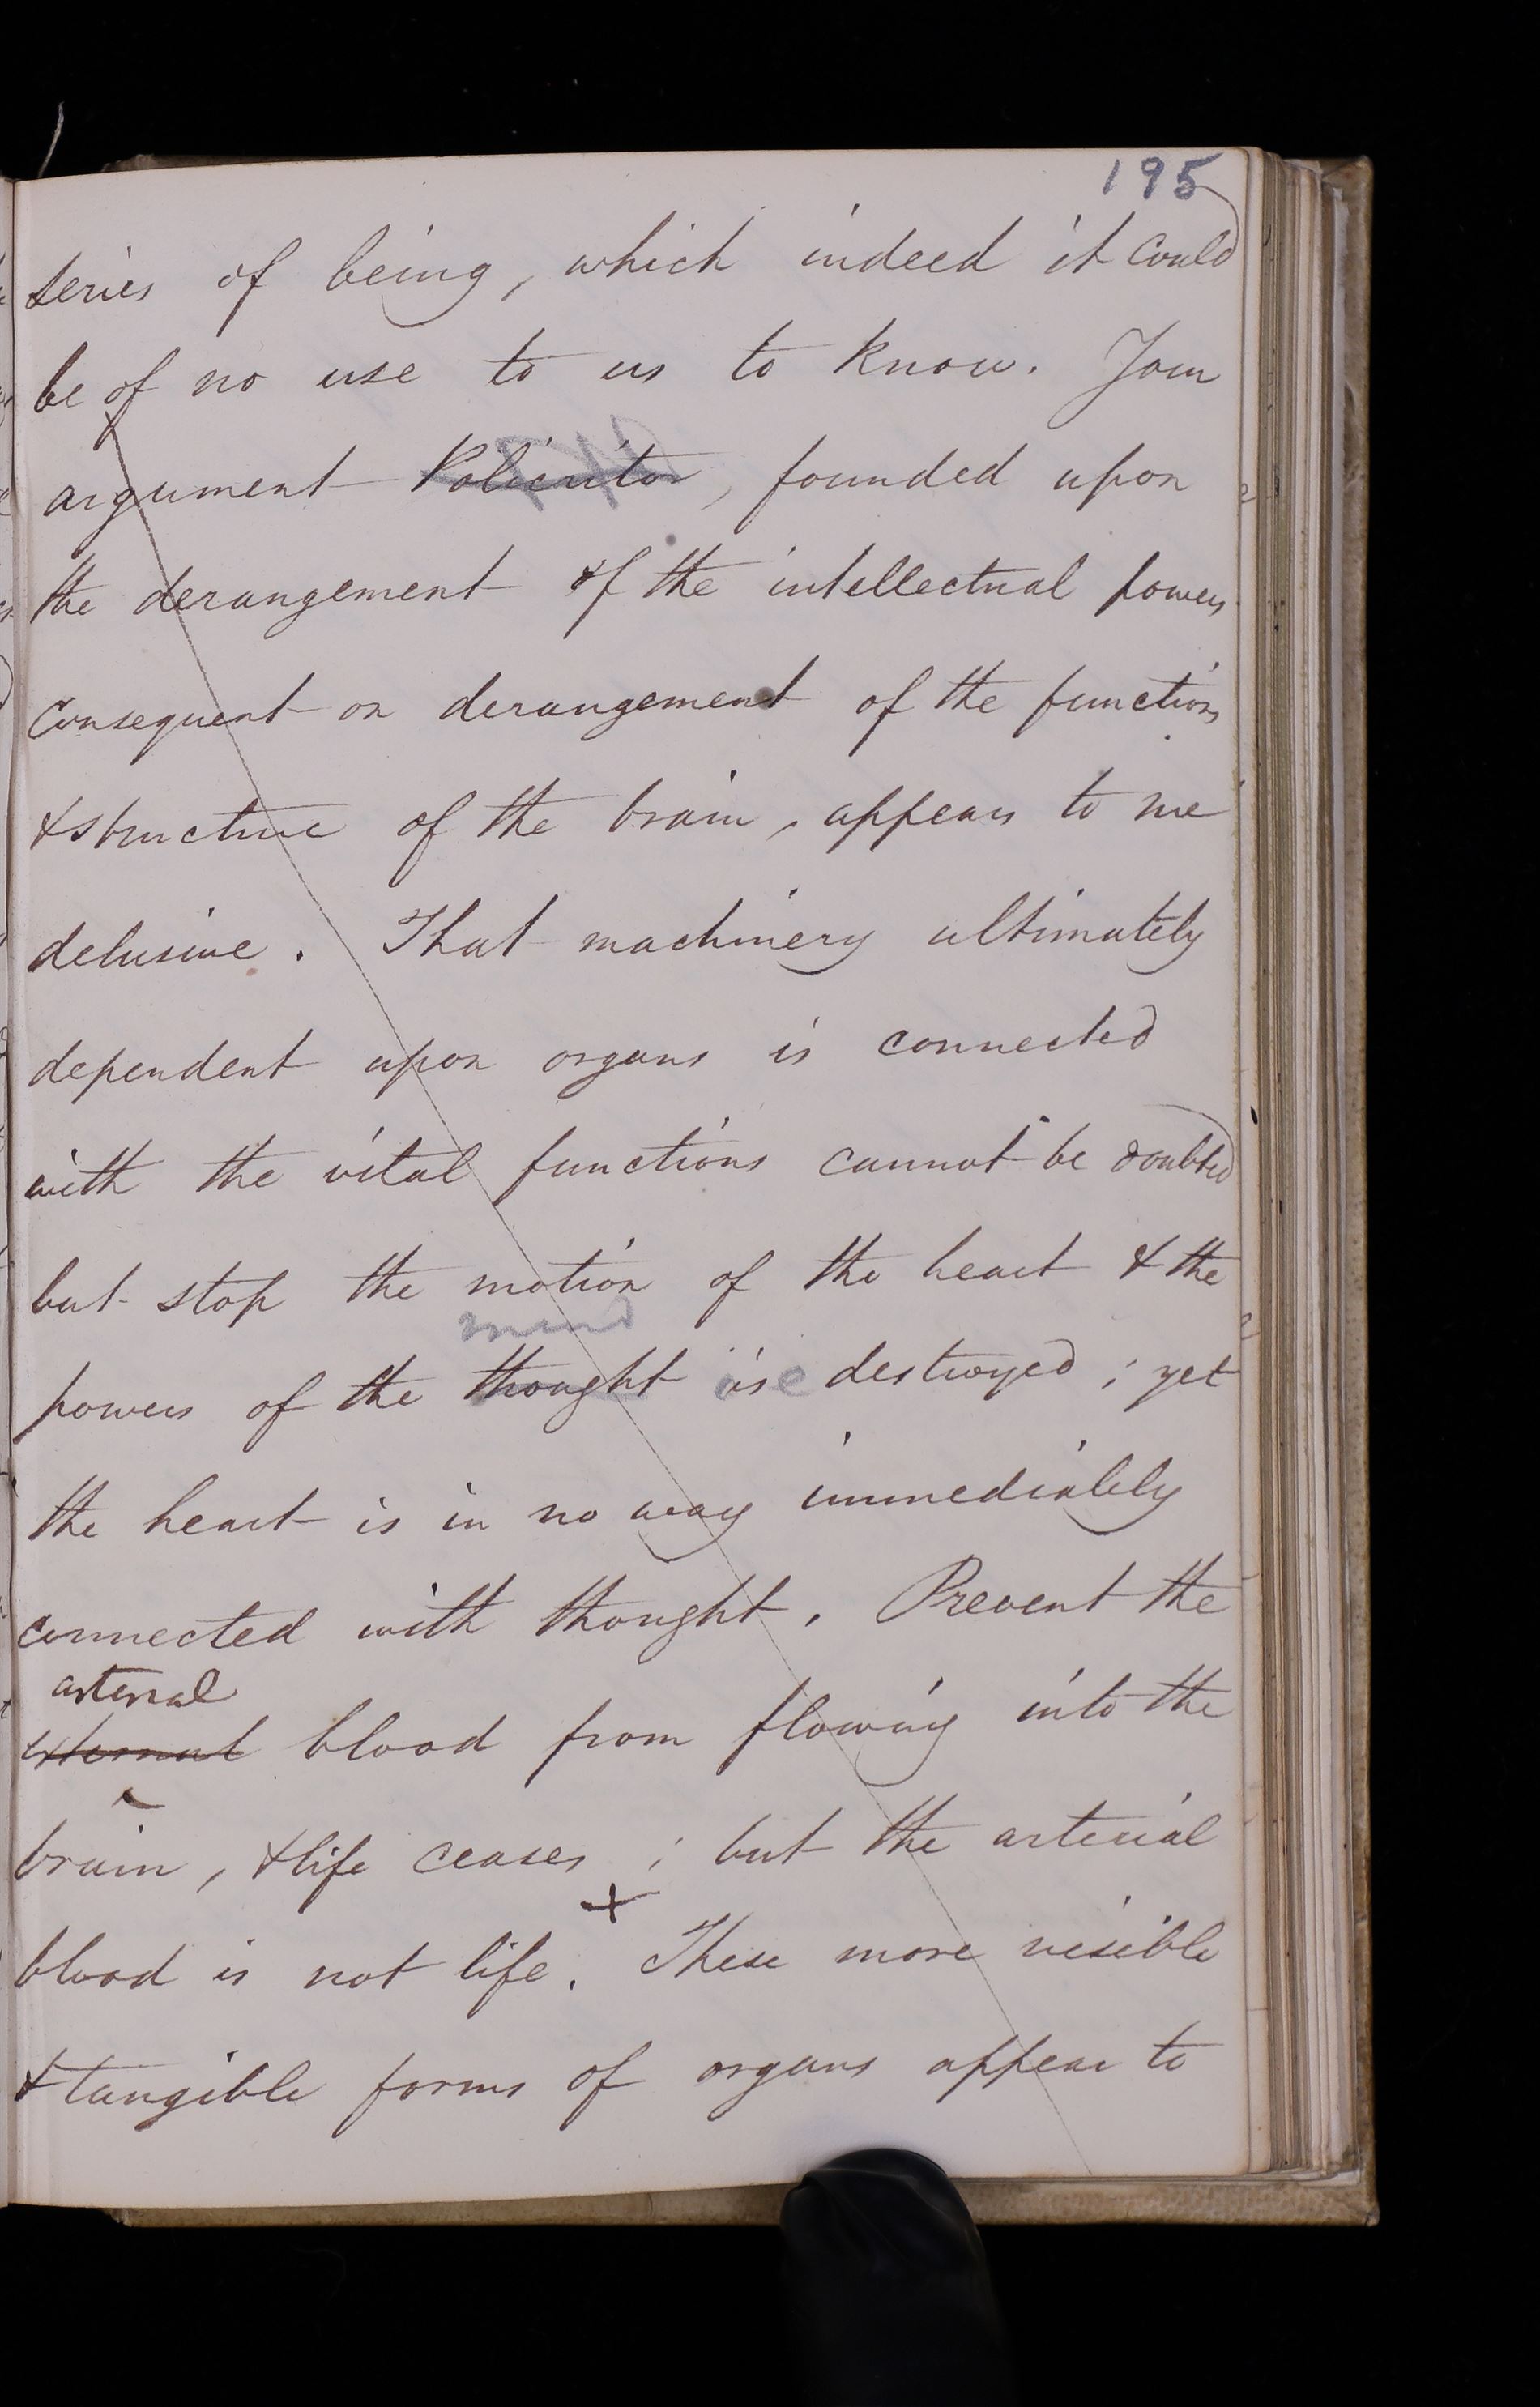 195
series of being, which indeed it could
be of no use to us to know. Your
argument Policritor, founded upon
the derangement of the intellectual powers
consequent on derangement of the functions
& structure of the brain, appears to me
delusive. That machinery ultimately
dependent upon organs is connected
with the vital functions cannot be doubted
but stop the motion of the heart & the
mind
powers of the thought is destroyed; yet
the heart is in no way immediately
connected with thought. Prevent the
arterial
external blood from flowing into the
brain, & life ceases; but the arterial
+
blood is not life. These more visible
& tangible forms of organs appear to